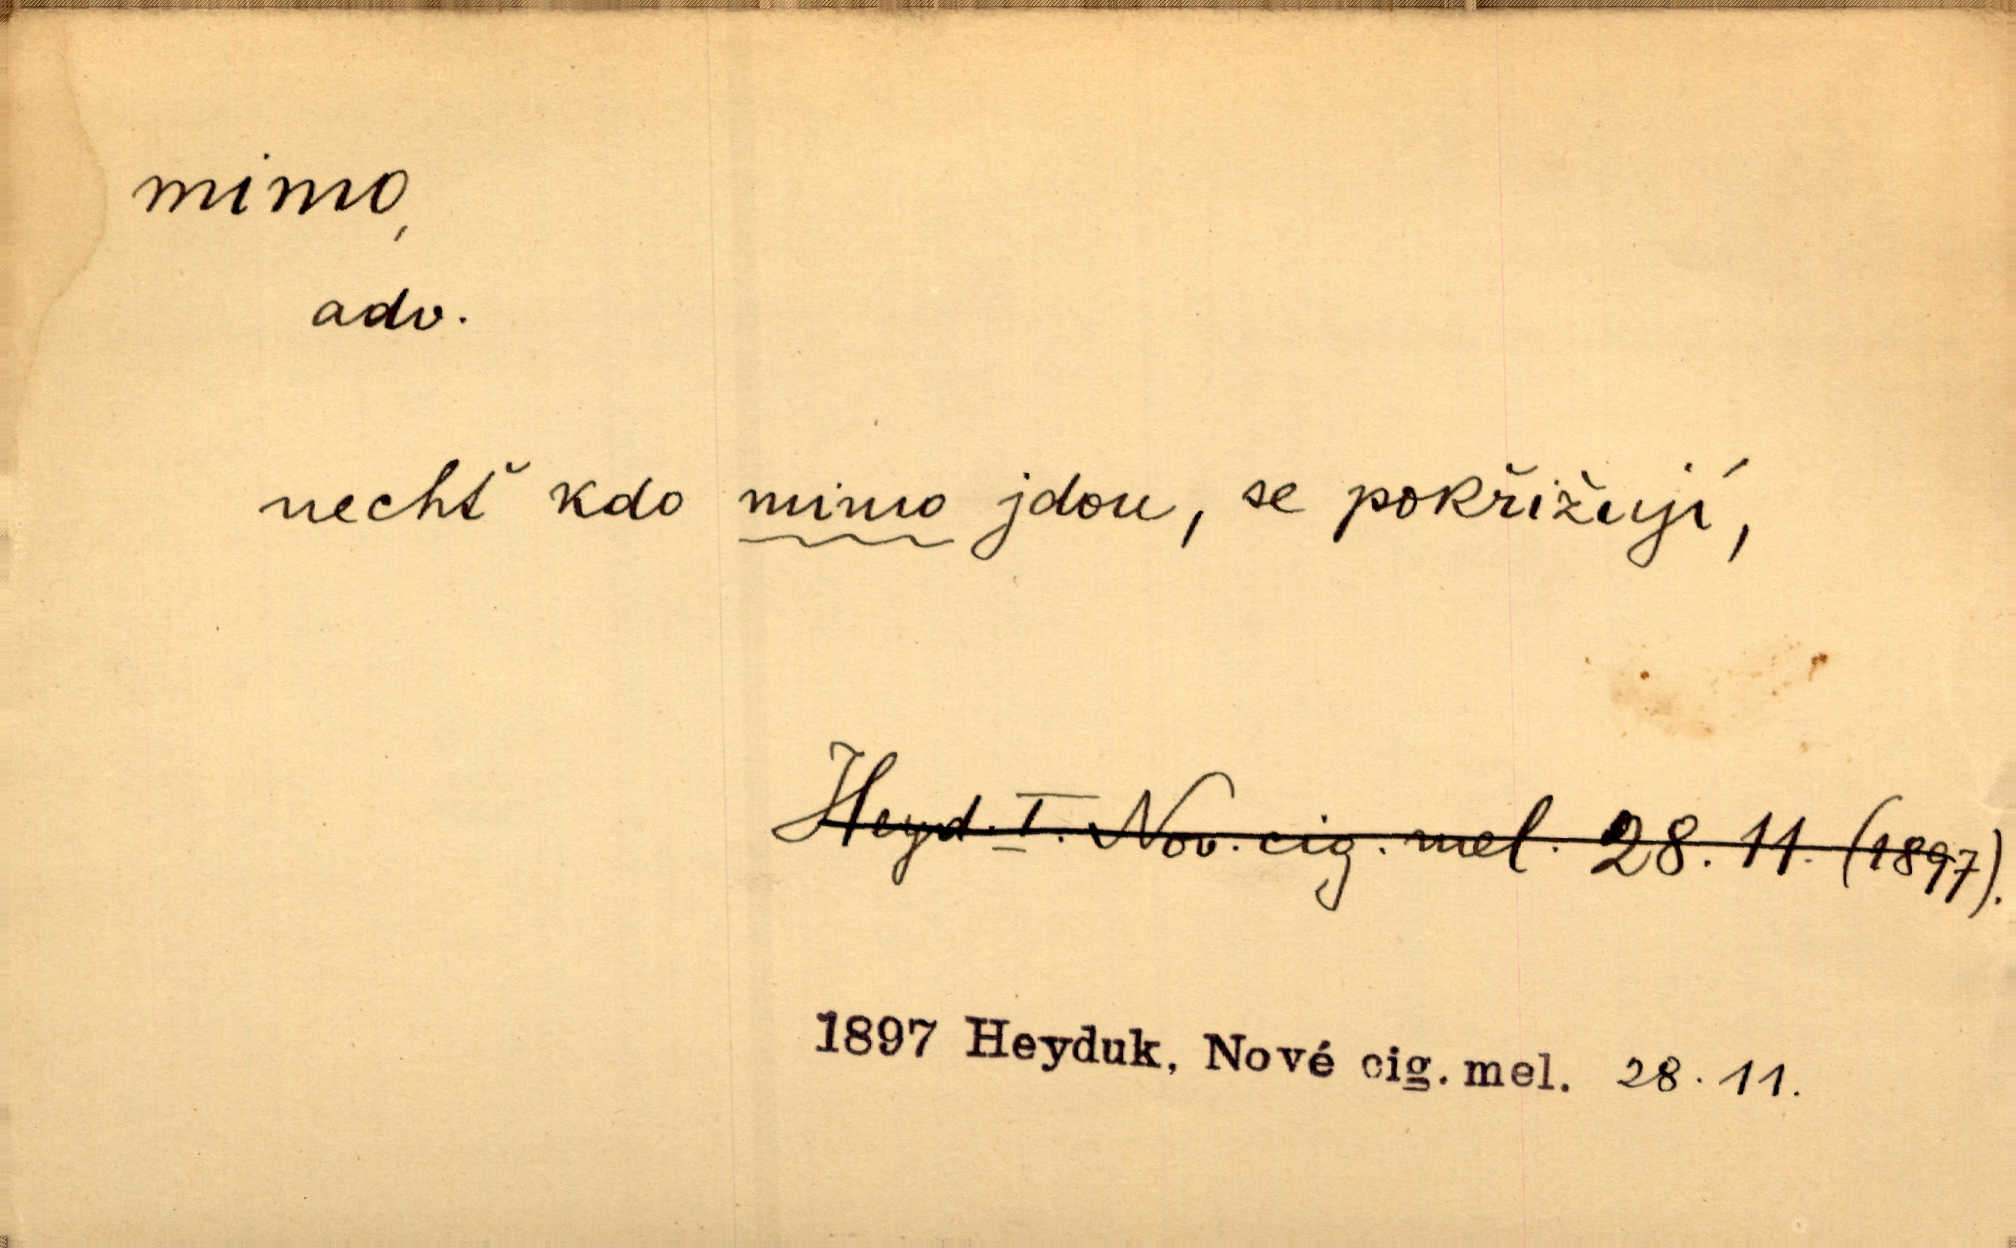 mimo,
adv.
nechť kdo mimo jdou, se pokřižují,
Heyd. I. Nov. cig. mel. 28. 11. (1897).
1897 Heyduk, Nové cig. mel. 28. 11.